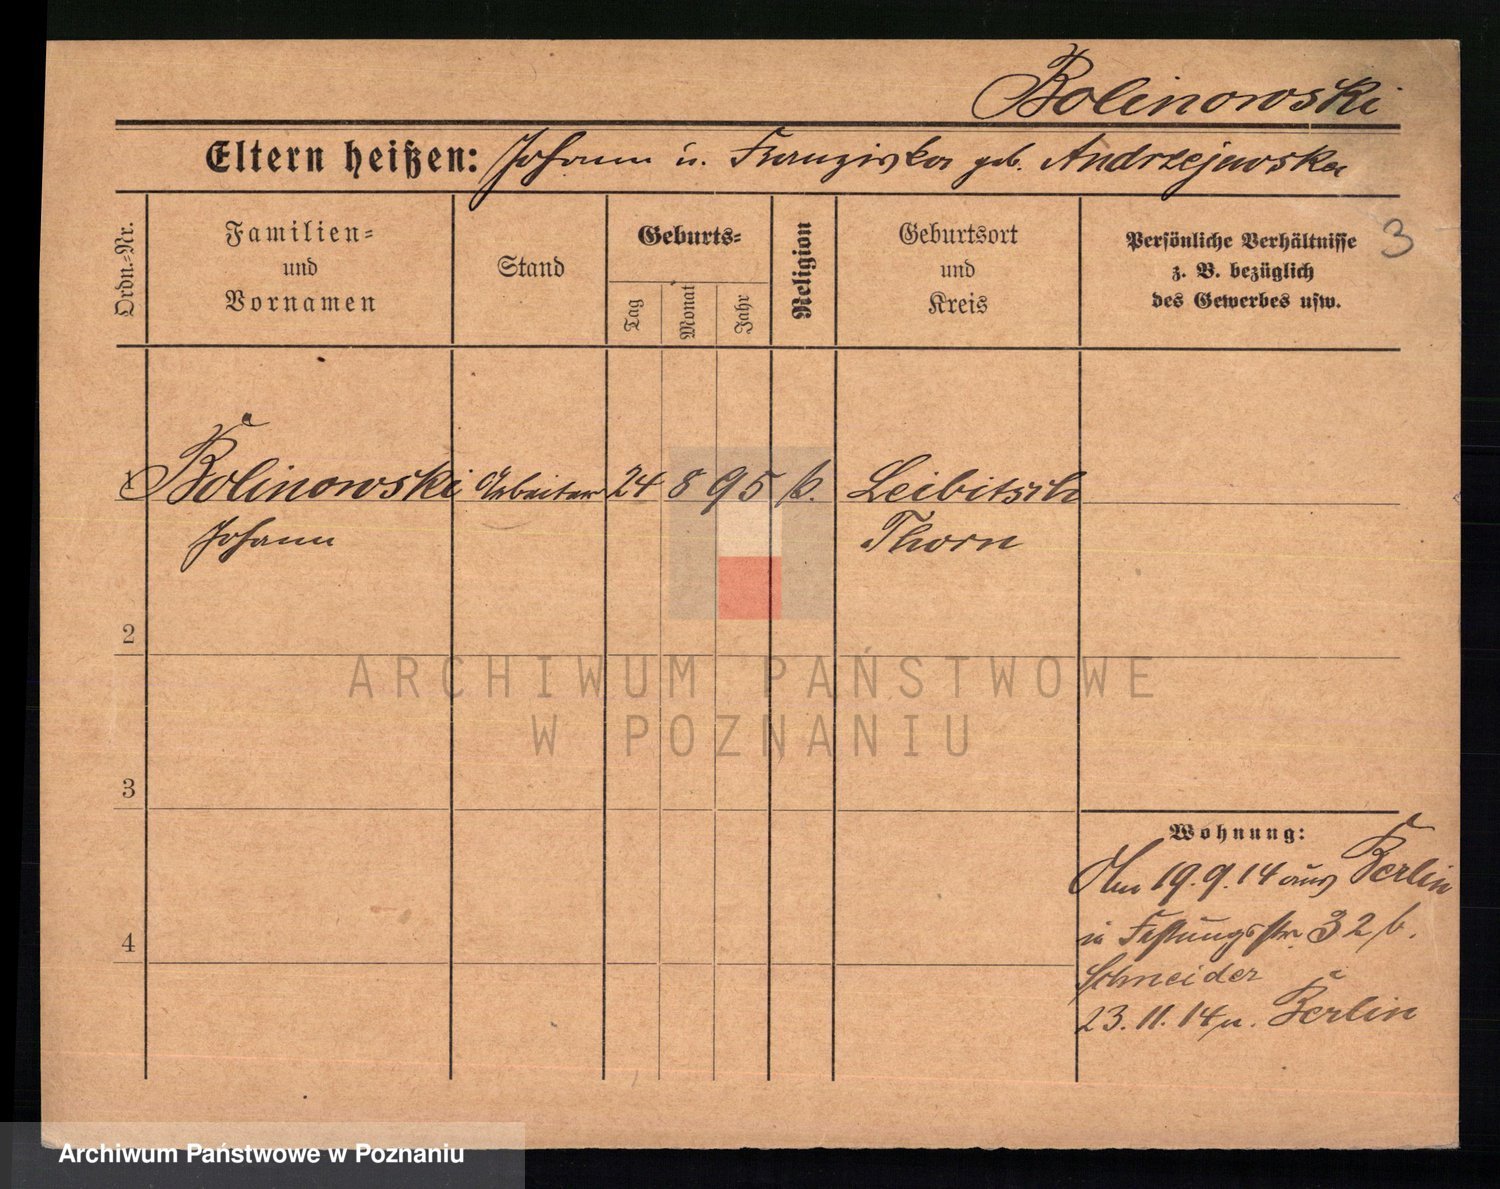 Bolinowski
Eltern heißen: Johann u. Franziska geb. Andrzejewska
3
Ordn.=Nr.
Familien=
und
Vornamen
Stand
Geburts=
Tag
Monat
Jahr
Religion
Geburtsort
und
Kreis
Persönliche Verhältnisse
z. B. bezüglich
des Gewerbes usw.
1 Bolinowski Arbeiter 24 8 95 k. Leibitsch
Johann Thorn
2
3
4
Wohnung:
Am 19.9.14 aus Berlin
in Festungsstr. 32 b.
Schneider
23.11.14 n. Berlin
ARCHIWUM PAŃSTWOWE
W POZNANIU
Archiwum Państwowe w Poznaniu